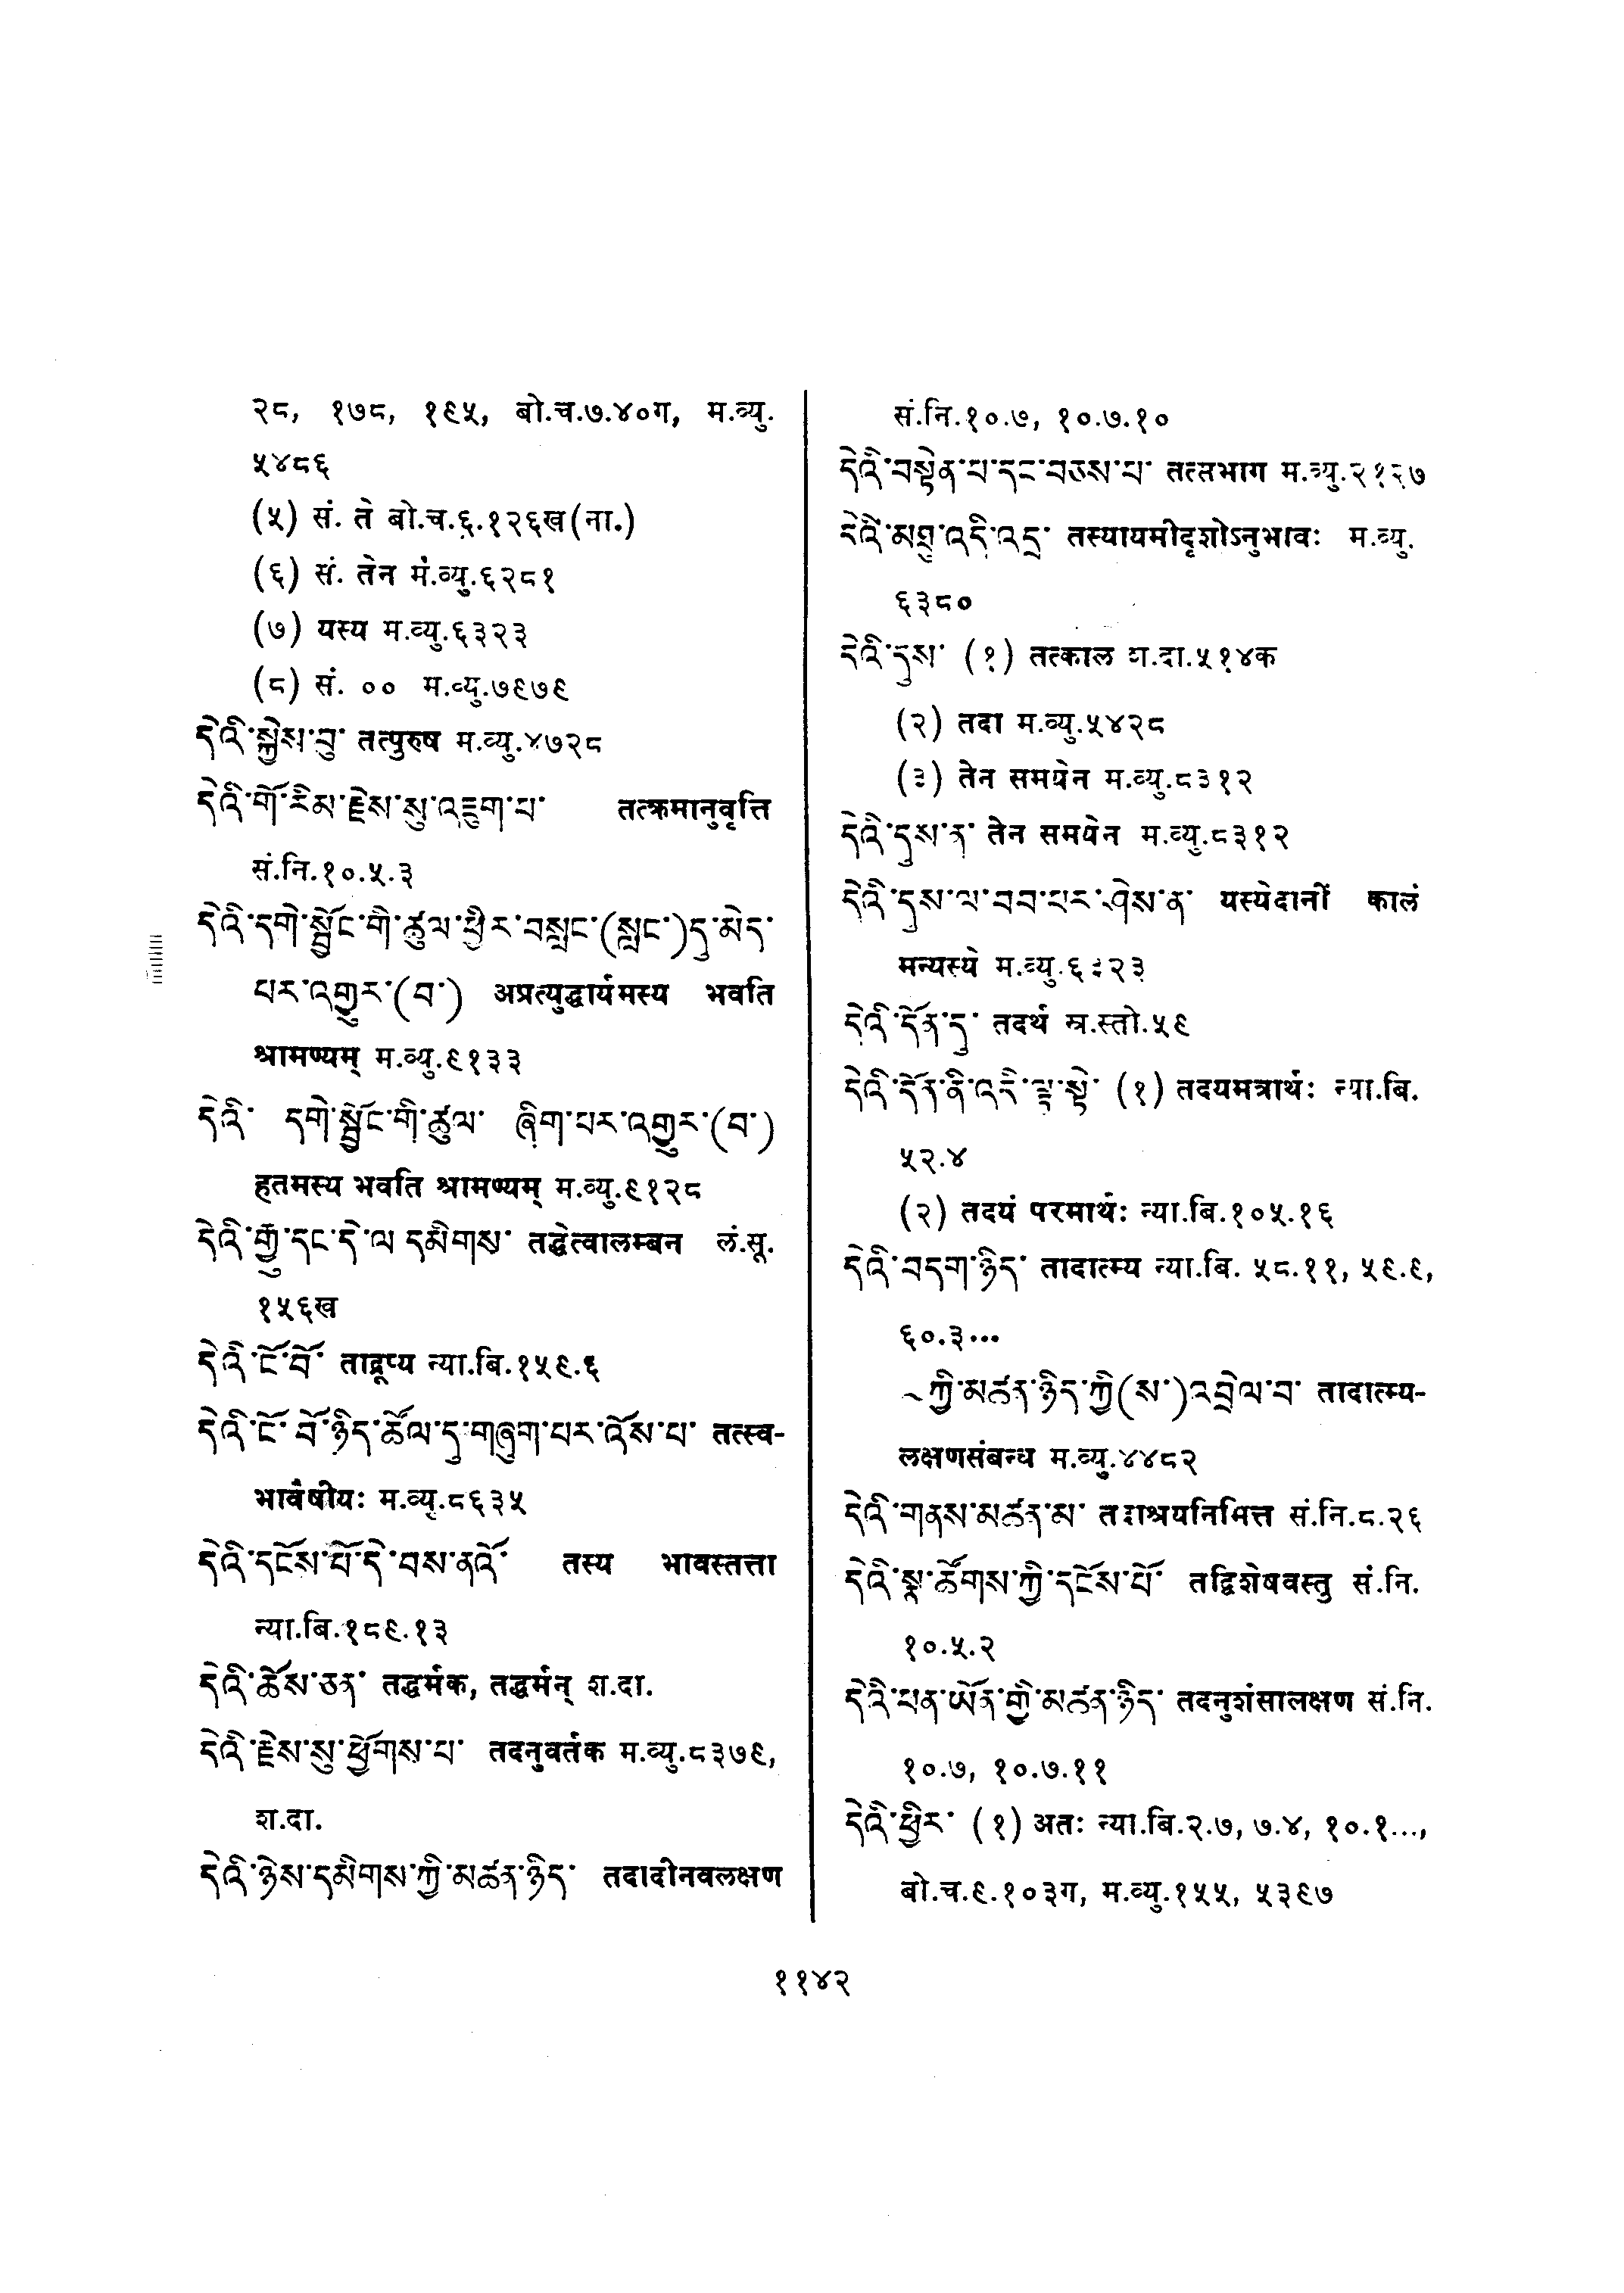 २८, १७८, १९५, बो.च.७.४०ग, म.व्यु.
५४८६
(५) सं. ते बो.च.६.१२६ख(ना.)
(६) सं. तेन म.व्यु.६२८१
(७) यस्य म.व्यु.६३२३
(८) सं. ०० म.व्यु.७९७९
དེའི་སྐྱེས་བུ་ तत्पुरुष म.व्यु.४७२८
དེའི་གོ་རིམ་རྗེས་སུ་འཇུག་པ་ तत्क्रमानुवृत्ति
सं.नि.१०.५.३
དེའི་དགེ་སྦྱོང་གི་ཚུལ་ཕྱིར་བསླང་(སླང་)དུ་མེད་
པར་འགྱུར་(བ་) अप्रत्युद्धार्यमस्य भवति
श्रामण्यम् म.व्यु.९१३३
དེའི་ དགེ་སྦྱོང་གི་ཚུལ་ ཞིག་པར་འགྱུར་(བ་)
हतमस्य भवति श्रामण्यम् म.व्यु.९१२८
དེའི་རྒྱུ་དང་དེ་ལ་དམིགས་ तद्धेत्वालम्बन लं.सू.
१५६ख
དེའི་ངོ་བོ་ ताद्रूप्य न्या.बि.१५९.६
དེའི་ངོ་བོ་ཉིད་ཚོལ་དུ་གཞུག་པར་འོས་པ་ तत्स्व-
भावैषीयः म.व्यु.८६३५
དེའི་དངོས་པོ་དེ་བས་ནའོ་ तस्य भावस्तत्ता
न्या.बि.१८९.१३
དེའི་ཆོས་ཅན་ तद्धर्मक, तद्धर्मन् श.दा.
དེའི་རྗེས་སུ་ཕྱོགས་པ་ तदनुवर्तक म.व्यु.८३७९,
श.दा.
དེའི་ཉེས་དམིགས་ཀྱི་མཚན་ཉིད་ तदादीनवलक्षण
सं.नि.१०.७, १०.७.१०
དེའི་བསྟེན་པ་དང་བཅས་པ་ तत्सभाग म.व्यु.२१२७
དེའི་མཐུ་འདི་འདྲ་ तस्यायमीदृशोऽनुभावः म.व्यु.
६३८०
དེའི་དུས་ (१) तत्काल श.दा.५१४क
(२) तदा म.व्यु.५४२८
(३) तेन समयेन म.व्यु.८३१२
དེའི་དུས་ན་ तेन समयेन म.व्यु.८३१२
དེའི་དུས་ལ་བབ་པར་ཤེས་ན་ यस्येदानीं कालं
मन्यस्ये म.व्यु.६३२३
དེའི་དོན་དུ་ तदर्थ स्र.स्तो.५९
དེའི་དོན་ནི་འདི་ལྟ་སྟེ་ (१) तदयमत्रार्थः न्या.बि.
५२.४
(२) तदयं परमार्थः न्या.बि.१०५.१६
དེའི་བདག་ཉིད་ तादात्म्य न्या.बि. ५८.११, ५९.९,
६०.३...
~ཀྱི་མཚན་ཉིད་ཀྱི(ས་)འབྲེལ་བ་ तादात्म्य-
लक्षणसंबन्ध म.व्यु.४४८२
དེའི་གནས་མཚན་མ་ तदाश्रयनिमित्त सं.नि.८.२६
དེའི་སྣ་ཚོགས་ཀྱི་དངོས་པོ་ तद्विशेषवस्तु सं.नि.
१०.५.२
དེའི་པན་ཡོན་གྱི་མཚན་ཉིད་ तदनुशंसालक्षण सं.नि.
१०.७, १०.७.११
དེའི་ཕྱིར་ (१) अतः न्या.बि.२.७, ७.४, १०.१...,
बो.च.९.१०३ग, म.व्यु.१५५, ५३९७
११४२